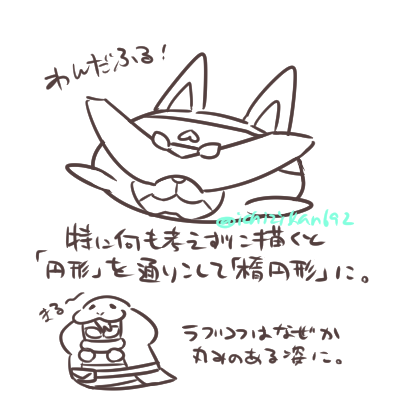 わんだふる！
@ichizidan692
特に何も考えずに描くと
「円形」を通りこして「楕円形」に。
まる〜
ラブコフはなぜか
丸みのある姿に。